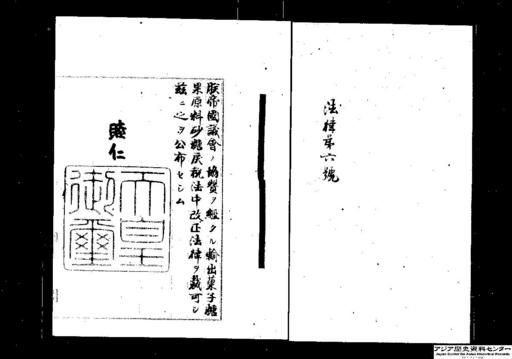 法律第六號
朕帝國議會ノ協賛ヲ經タル輸出菓子糖
果原料砂糖戻税法中改正法律ヲ裁可シ
茲ニ之ヲ公布セシム
睦仁
天皇
御璽
アジア歴史資料センター
Japan Center for Asian Historical Records